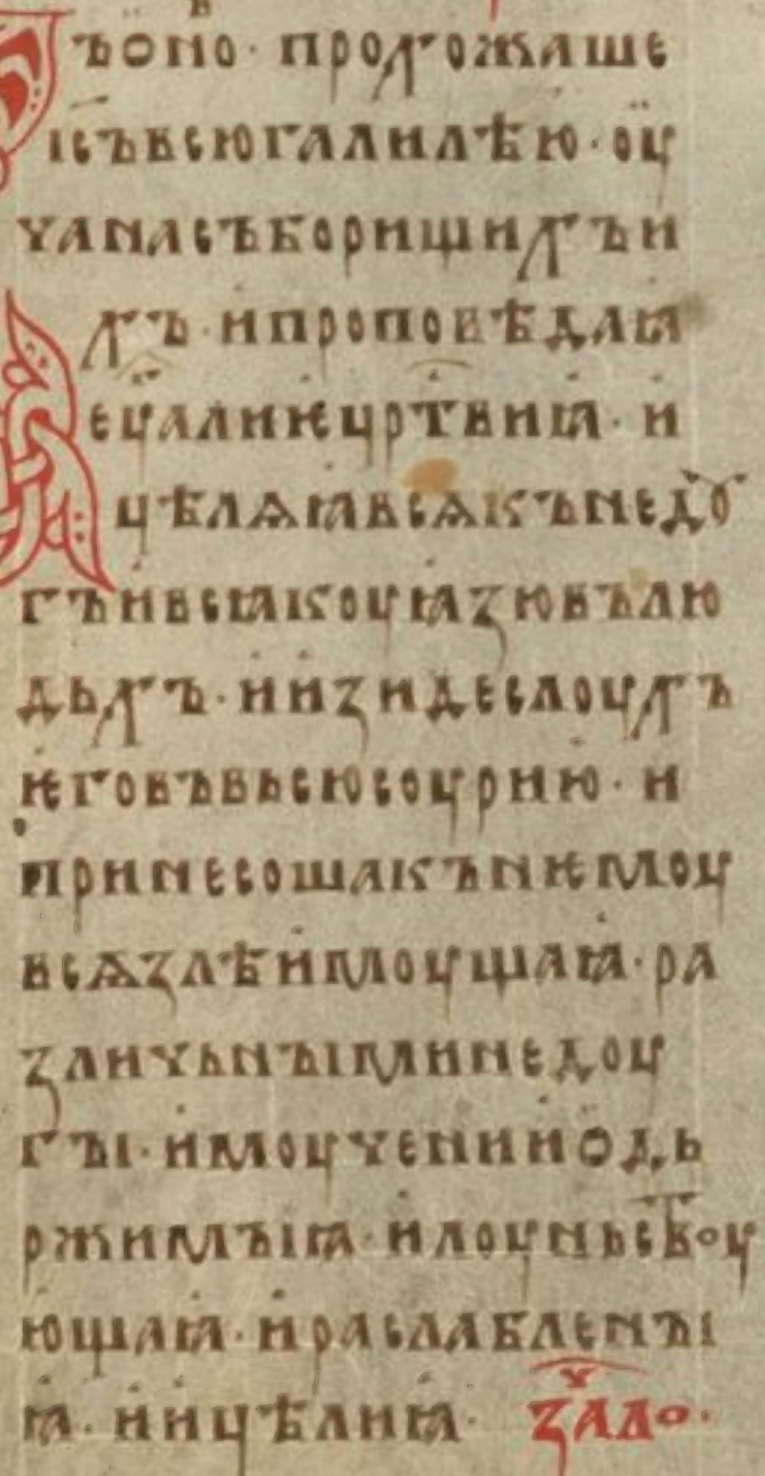 Въ оно · прохожаше
іс вьсю галилѣю · оу
чѧ на съборищихъ и
хъ · и проповѣдаꙗ
еуаⷢлиѥ црⷭтвиꙗ · и
цѣлѧꙗ всѧкъ недоу
гъ и всꙗкоу ꙗзю въ лю
дьхъ · и изиде слоухъ
ѥго въ вьсю соурию · и
принесоша къ нѥмоу
всѧ злѣ имоущаꙗ · ра
зличьными недоу
гы · и моучении одь
ржимыꙗ · и лоуньствоу
ющаꙗ · и раслаблены
ꙗ · и ицѣли ꙗ · зача́ло ·